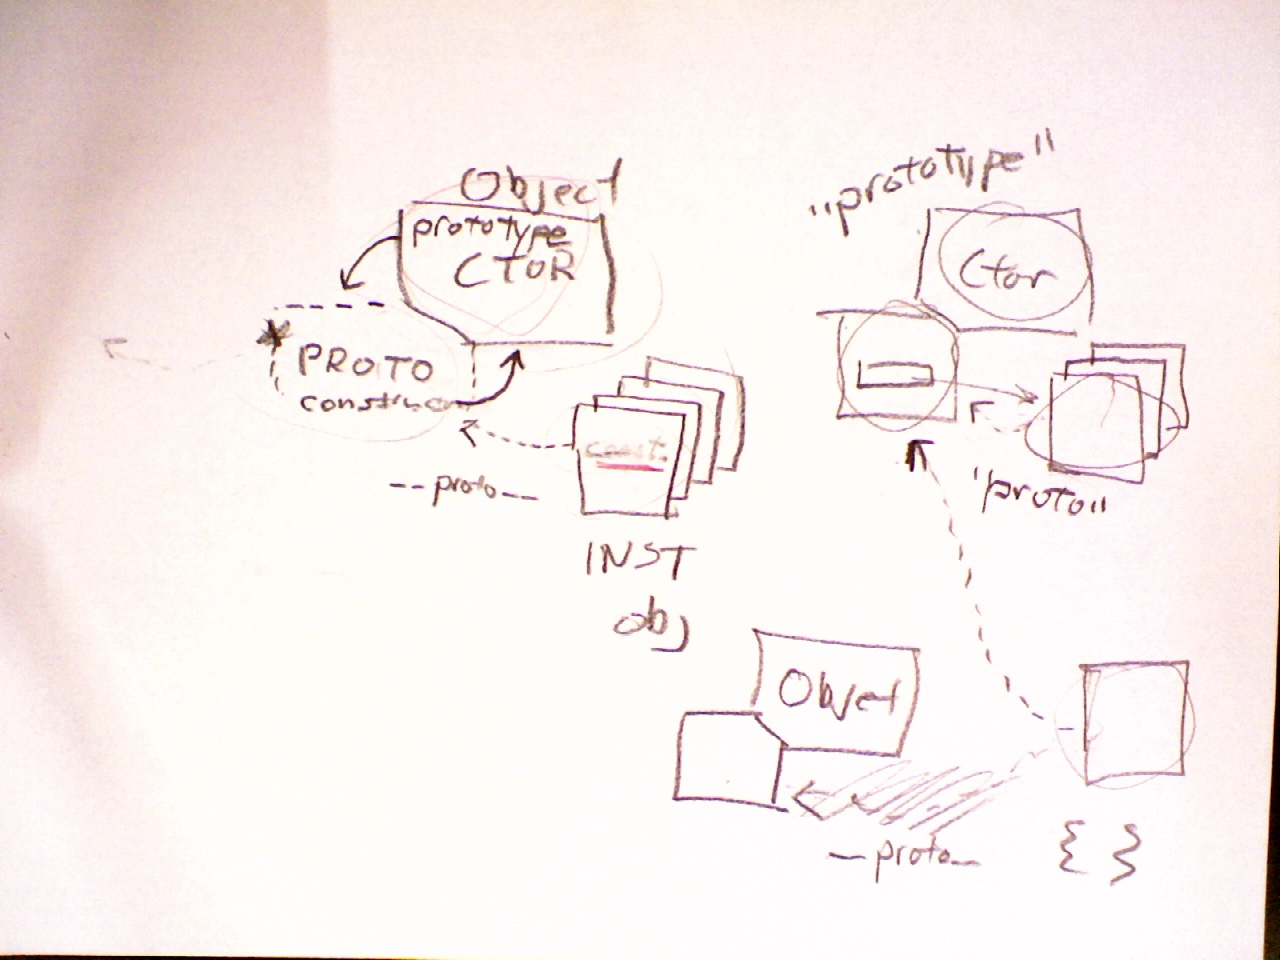 Object
prototype
CTOR
PROTO
--proto--
INST
obj
"prototype"
Ctor
"proto"
Object
--proto--
{ }